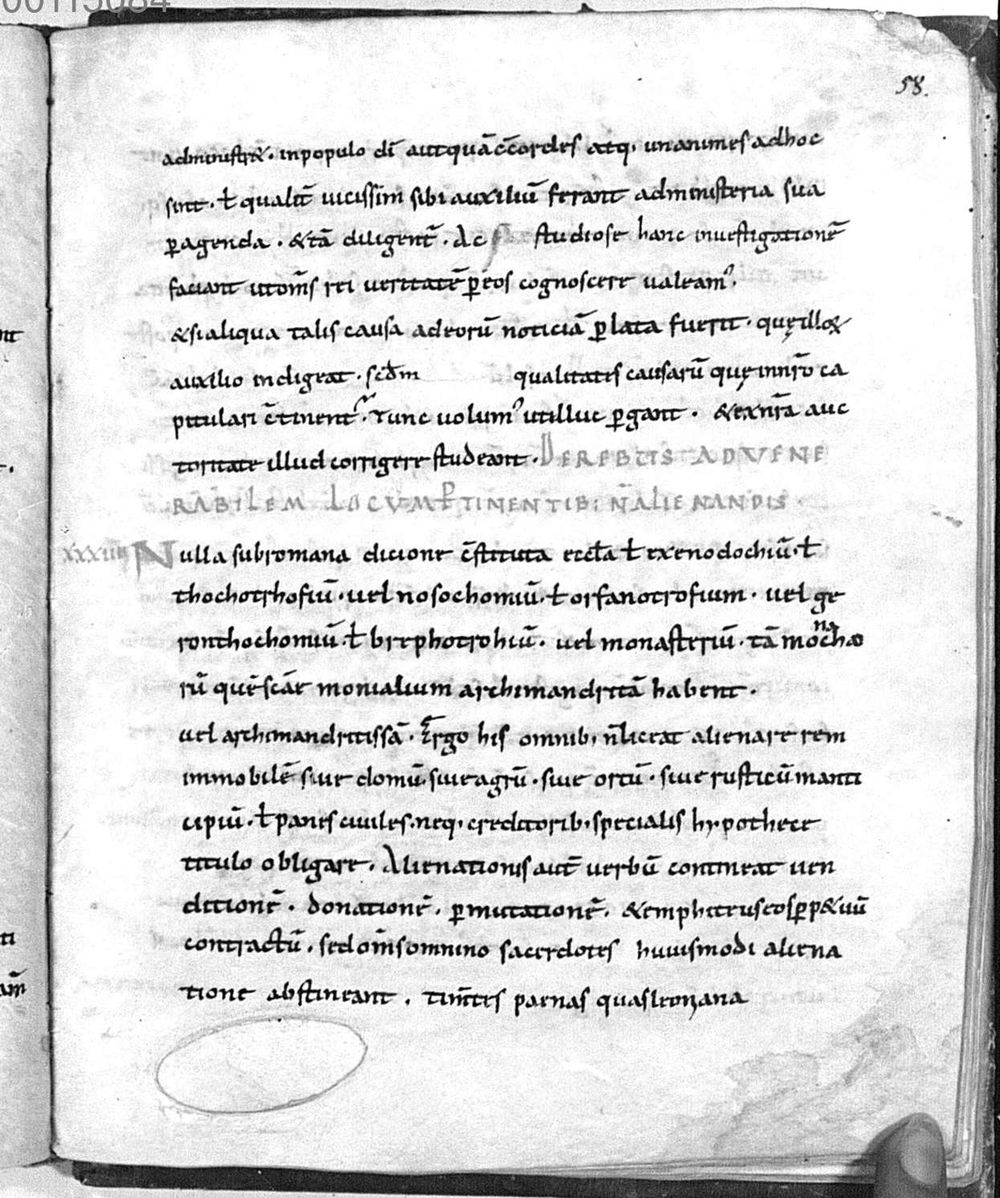 58.
administr&. inpopulo dī autquā c̄cordes atq; unanimes adhoc
sint. ł qualit̄ uicissim sibi auxiliū ferant administeria sua
p̲agenda. &tā diligent̄. Ac studiose hanc inuestigationē
faciant utom̄s rei ueritatē p̲ eos cognoscere ualeam᾽.
&sialiqua talis causa adeorū noticiā p̲lata fuerit. quę illo⁊
auxilio indigeat. scd̄m qualitates causarū quę innr̄o ca
pitulari c̄tinent᾽. Tunc uolum᾽ utilluc p̲gant. &exnr̄a auc
toritate illud corrigere studeant. DEREBUS ADVENE
RABILEM LOCVM P̲TINENTIB; N̄ ALIENANDIS.
xxxiiii Nulla subromana dicione c̄stituta eccła ł exenodochiū. ł
thochotrhofiū. uel nosochomiū. ł orfanotrofium. uel ge
ronthochomiū. ł brephotrohiū. uel monasteriū. tā monacho
rū quē scāe monialium archimandritā habent.
uel archimandritissā. Ergo his omnib; n̄ liceat alienare rem
immobilē siue domū. siue agrū. siue ortū. siue rusticū manti
cipiū. ł panes ciuiles. neq; creditorib; specialis hypothece
titulo obligare. Alienationis aut̄ uerbū contineat uen
ditionē. donationē. p̲mutationē. &emphiteuseos p̲p&uū
contractū. sed om̄s omnino sacerdotes huiusmodi aliena
tione abstineant. tim̄tes poenas quas leoniana